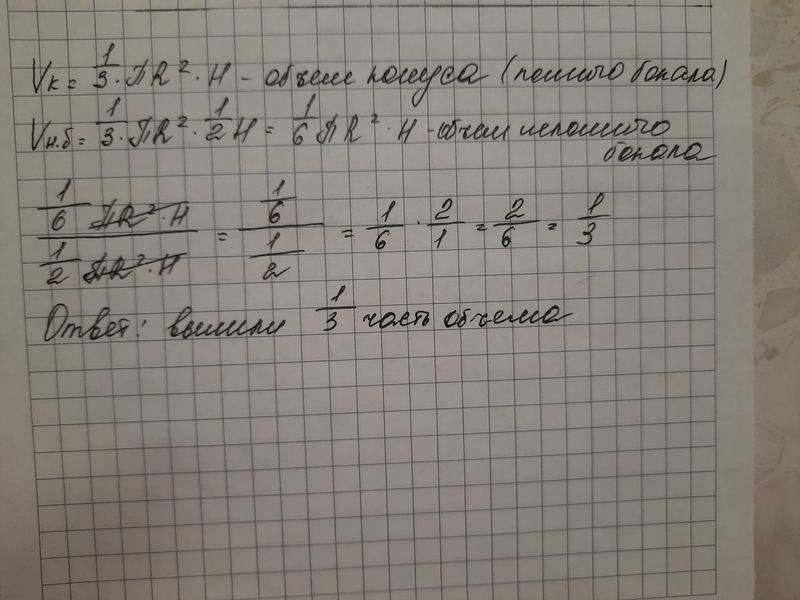 Vк = 1/3 · πR² · H - объем конуса (полного бокала)
Vн.б = 1/3 · πR² · 1/2 H = 1/6 πR² · H - объем неполного
бокала
1/6 πR² · H / 1/2 πR² · H = 1/6 / 1/2 = 1/6 · 2/1 = 2/6 = 1/3
Ответ: вылили 1/3 часть объема